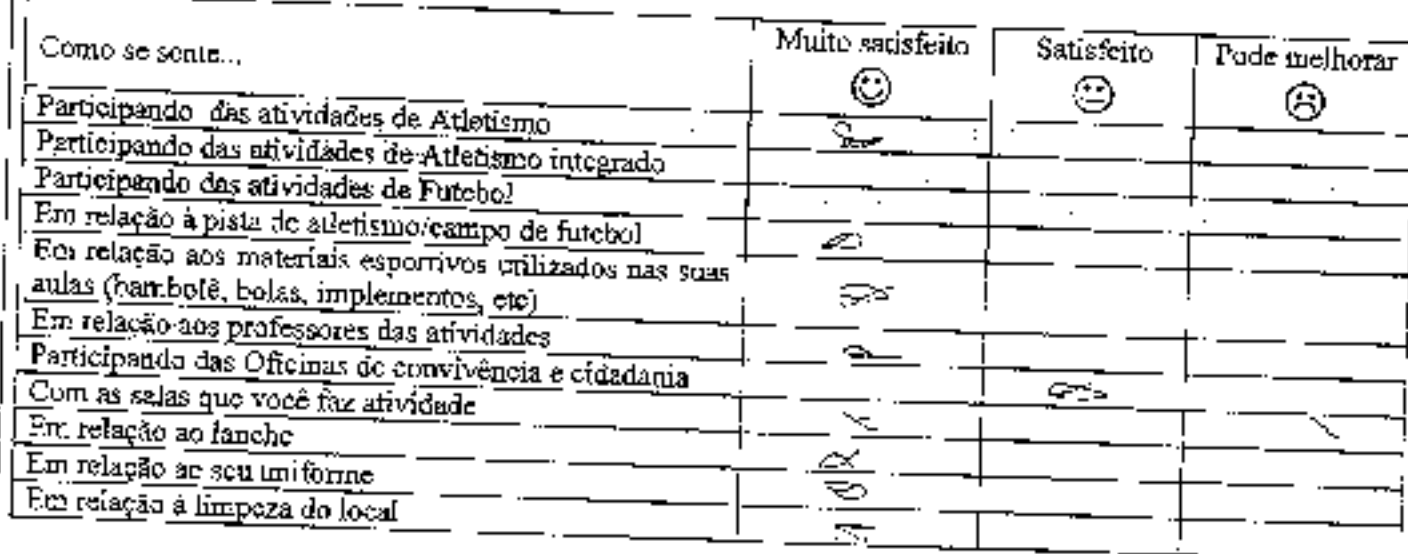 Como se sente...
Muito satisfeito
Satisfeito
Pode melhorar
Participando das atividades de Atletismo
Participando das atividades de Atletismo integrado
Participando das atividades de Futebol
Em relação à pista de atletismo/campo de futebol
Em relação aos materiais esportivos utilizados nas suas
aulas (bambolê, bolas, implementos, etc)
Em relação aos professores das atividades
Participando das Oficinas de convivência e cidadania
Com as salas que você faz atividade
Em relação ao lanche
Em relação ao seu uniforme
Em relação à limpeza do local